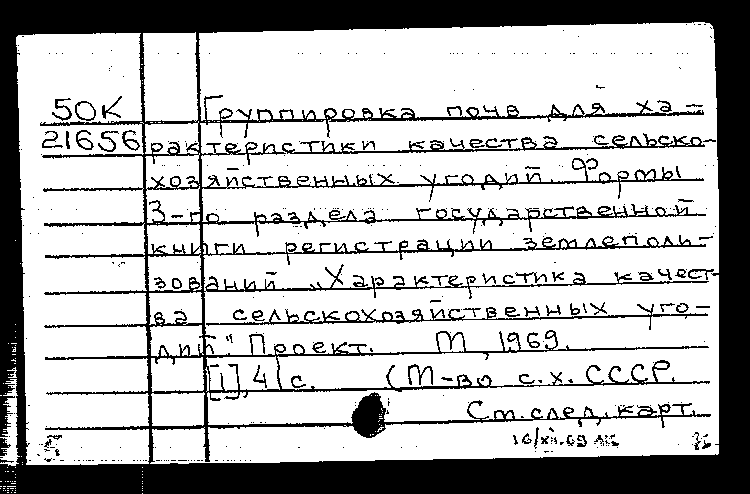 50К Группировка почв для ха-
21656 рактеристики качества сельско-
хозяйственных угодий. Формы
3-го раздела государственной
книги регистрации землеполь-
зований „Характеристика качест-
ва сельскохозяйственных уго-
дий". Проект. М, 1969.
[1], 41с. (М-во с.х. СССР.
См. след. карт.
16/XII.69